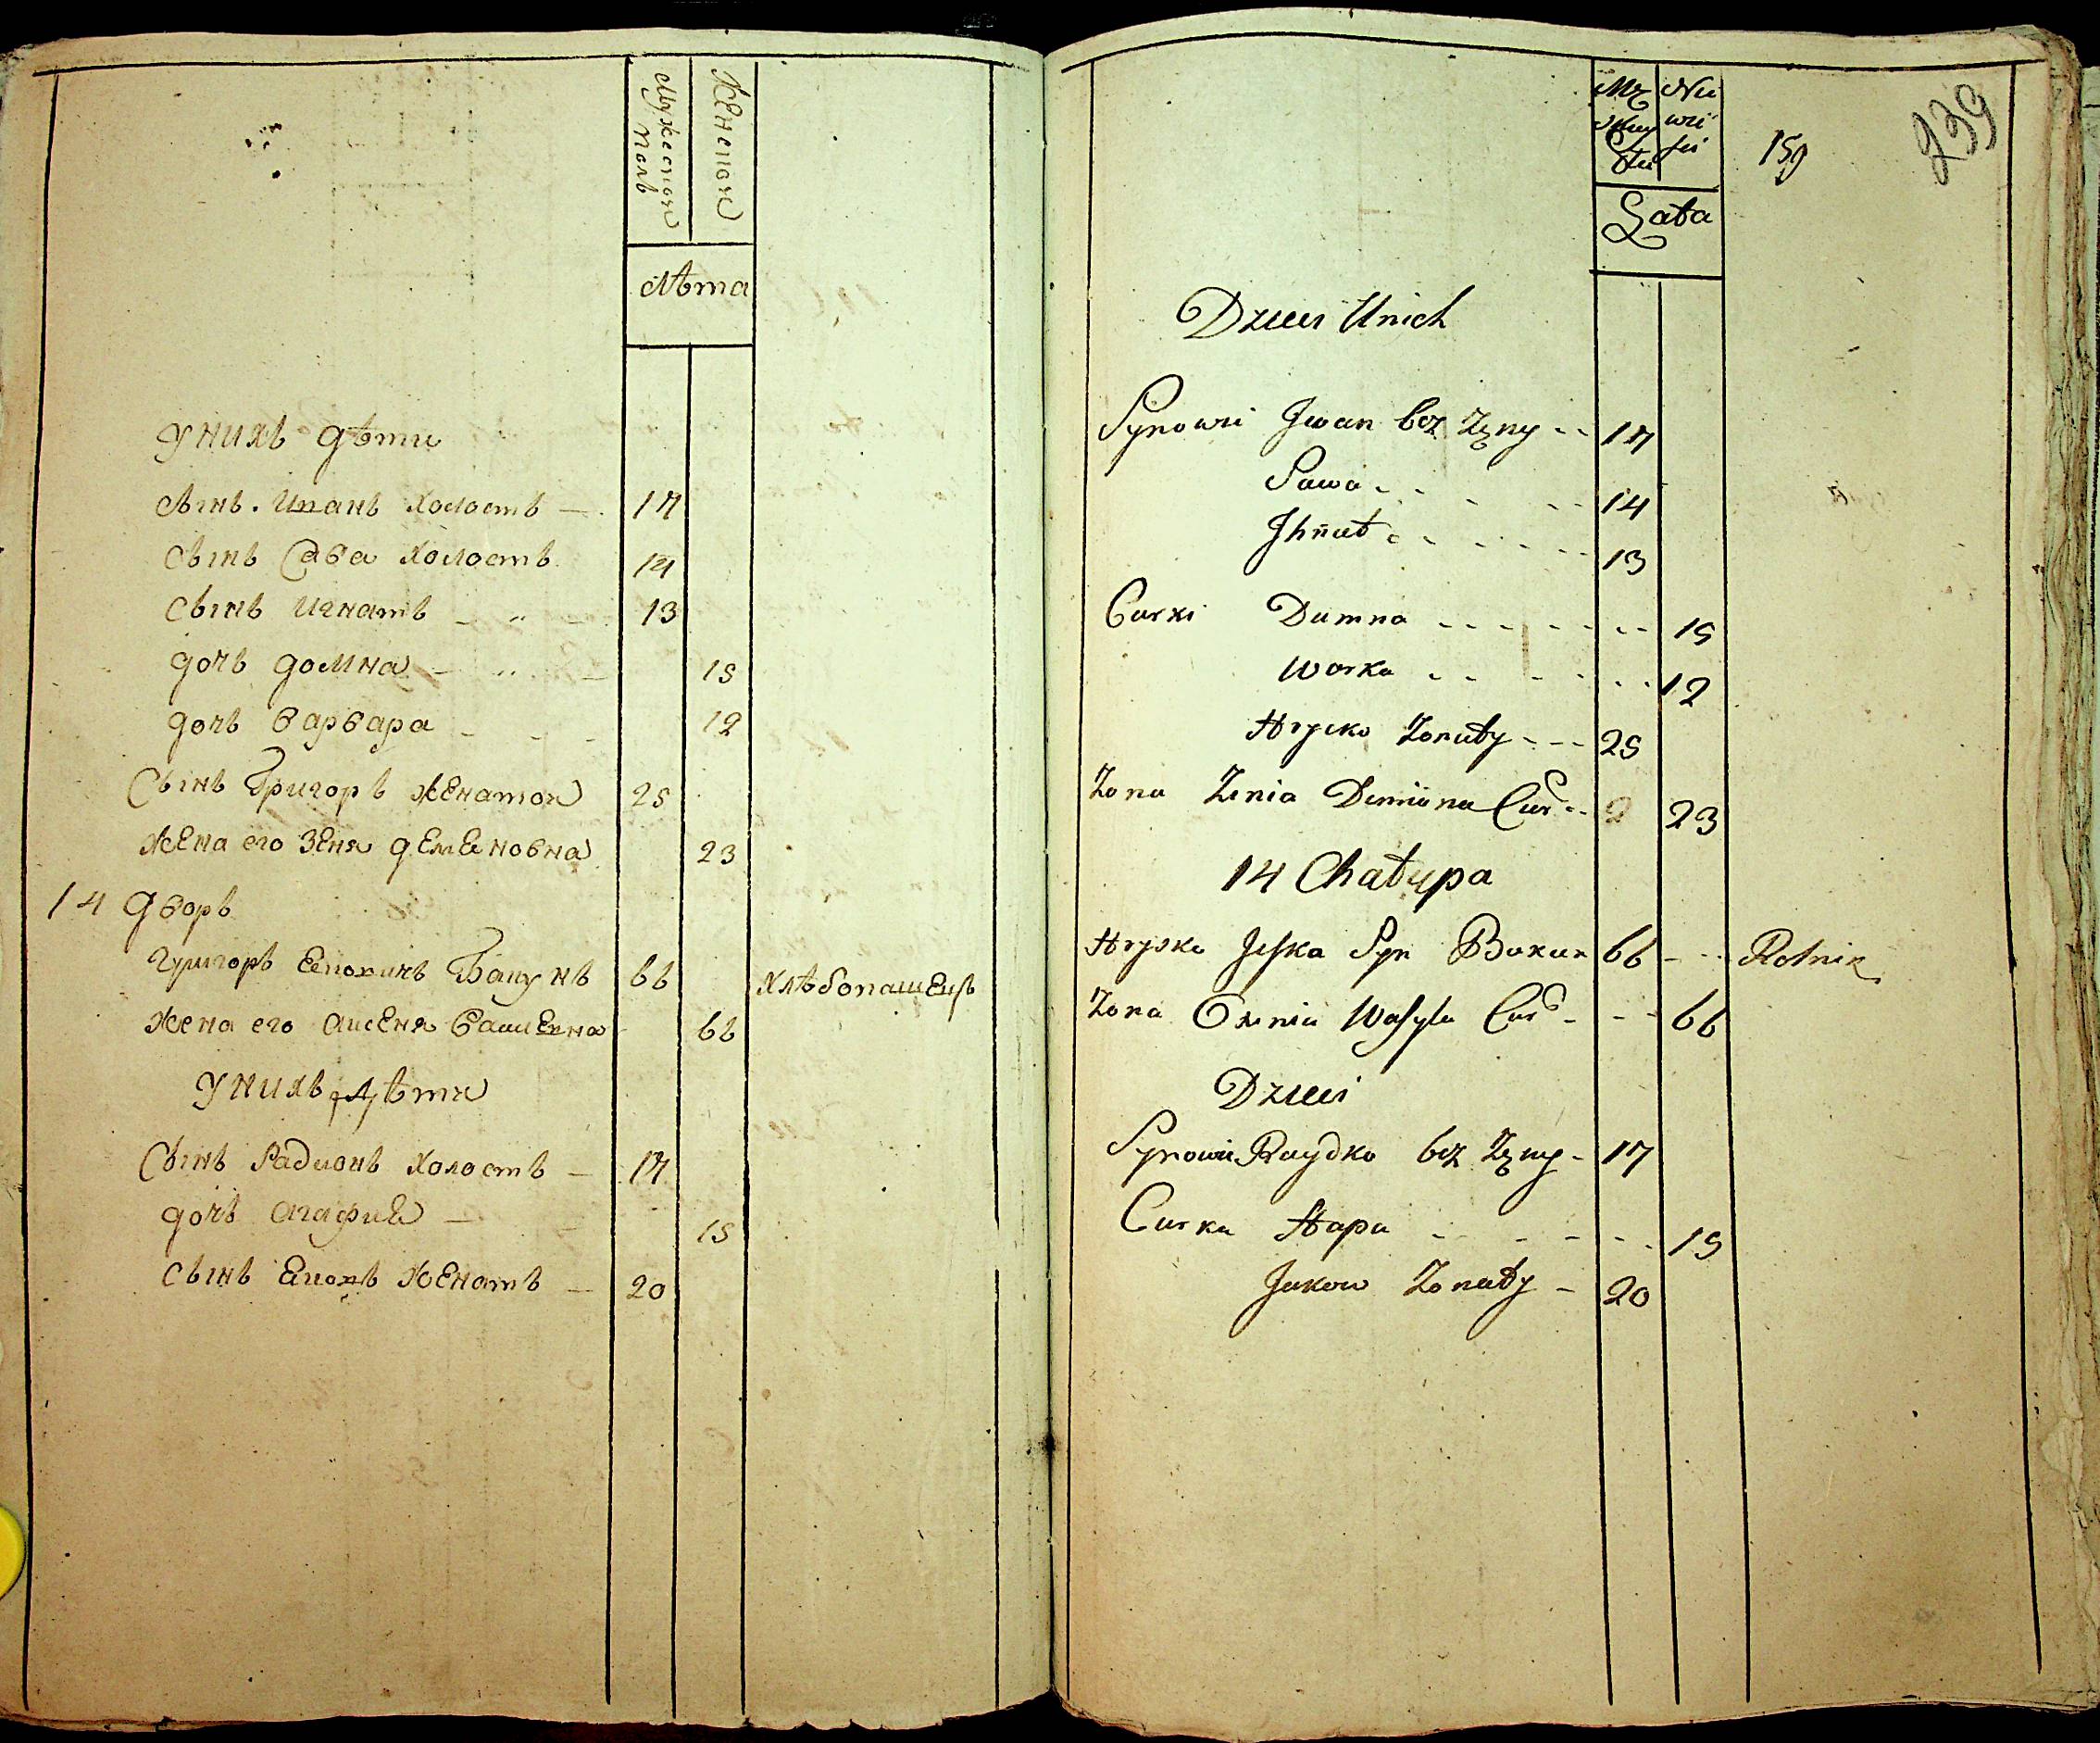 Мужескои полъ
Женскои
Лѣта
У нихъ дѣти
Сынъ Иванъ холостъ — 17
Сынъ Сава холостъ 14
Сынъ Игнатъ — „ — 13
дочъ домна — „ — 15
дочъ варвара - - - 12
Сынъ Григоръ женатои 25
жена его Зеня деменовна 23
14 дворъ
Григоръ Бакунъ 66 хлѣбопашецъ
жена его 66
У нихъ дѣти
Сынъ Радионъ холостъ — 17
дочъ агафия — 15
Сынъ женатъ — 20
239
159
Lata
Dzieci Unich
Synowie Jwan bez Zony - - 17
Sawa - - - - - 14
Jhnat - - - - - 13
Curki Dumna - - - - - - - 15
Warka - - - - - - 12
Hrycko Zonaty - - - 25
Zona Zenia Demiana Cur - - 23
14 Chatupa
Hrysko Jeska Syn Bakun 66 - - - Rolnik
Zona Wasyla Cur - - - 66
Dzieci
Synowie Raydko bez Zony - 17
Curka Hapa - - - - - - 15
Jakow Zonaty - 20